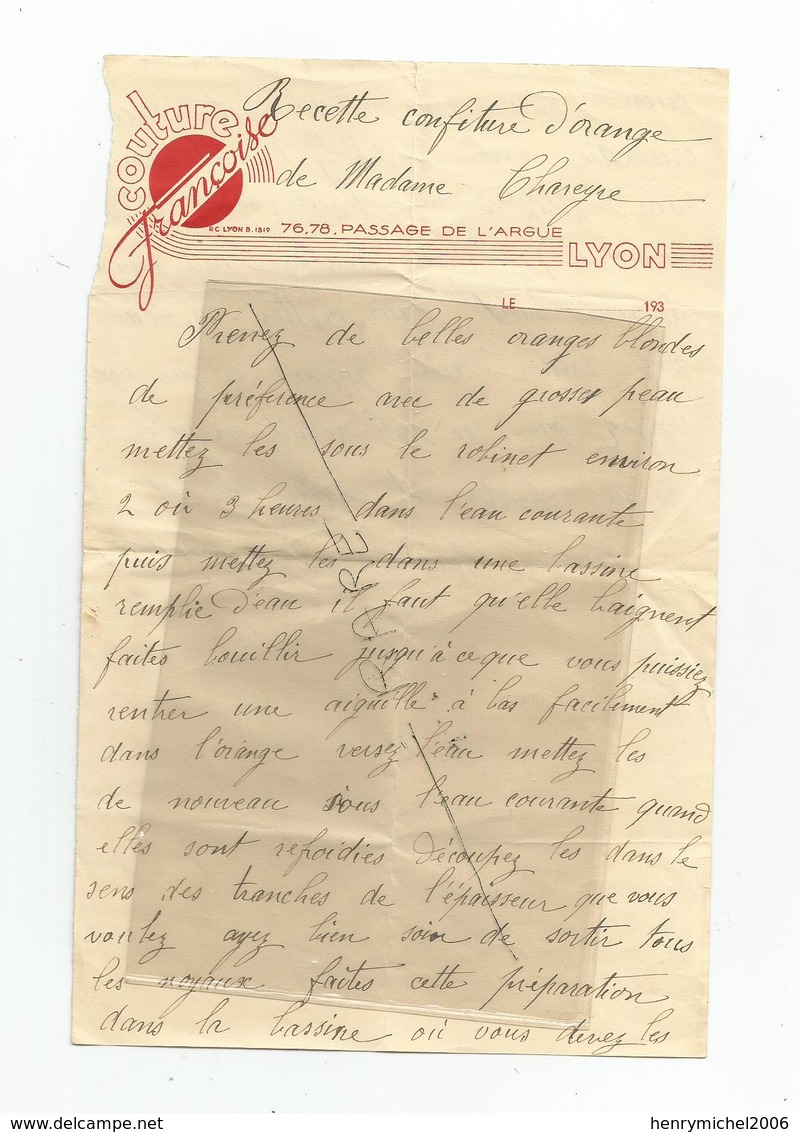 couture
Françoise
Recette confiture d'orange
de Madame Chareyre
RC LYON B. 1519 76,78, PASSAGE DE L'ARGUE
LYON
LE 193
Prenez de belles oranges blondes
de préférence avec de grosses peau
mettez les sous le robinet environ
2 où 3 heures dans l'eau courante
puis mettez les dans une bassine
remplie d'eau il faut qu'elle baignent
faites bouillir jusqu'à ce que vous puissiez
rentrer une aiguille à bas facilement
dans l'orange versez l'eau mettez les
de nouveau sous l'eau courante quand
elles sont refoidies découpez les dans le
sens des tranches de l'épaisseur que vous
voulez ayez bien soin de sortir tous
les noyaux faites cette préparation
dans la bassine où vous devez les
RARE
delcampe.net
henrymichel2006